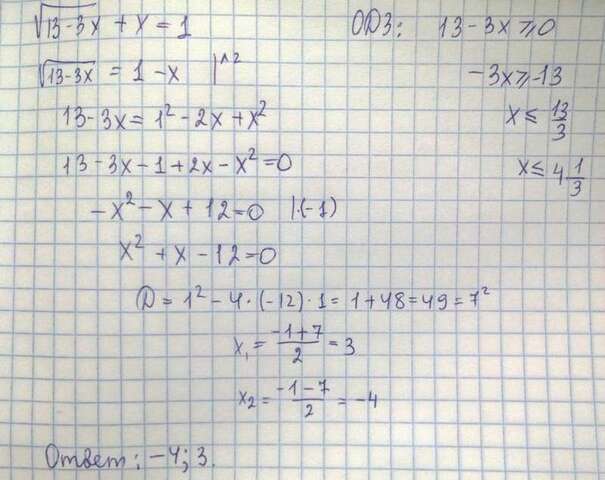 √(13-3x) + x = 1
ОДЗ: 13-3x ⩾ 0
√(13-3x) = 1-x |^2
-3x ⩾ -13
13-3x = 1² - 2x + x²
x ≤ 13/3
13-3x-1+2x-x²=0
x ≤ 4 1/3
-x²-x+12=0 |·(-1)
x²+x-12=0
D = 1²-4·(-12)·1 = 1+48=49=7²
x₁ = (-1+7)/2 = 3
x₂ = (-1-7)/2 = -4
Ответ: -4; 3.